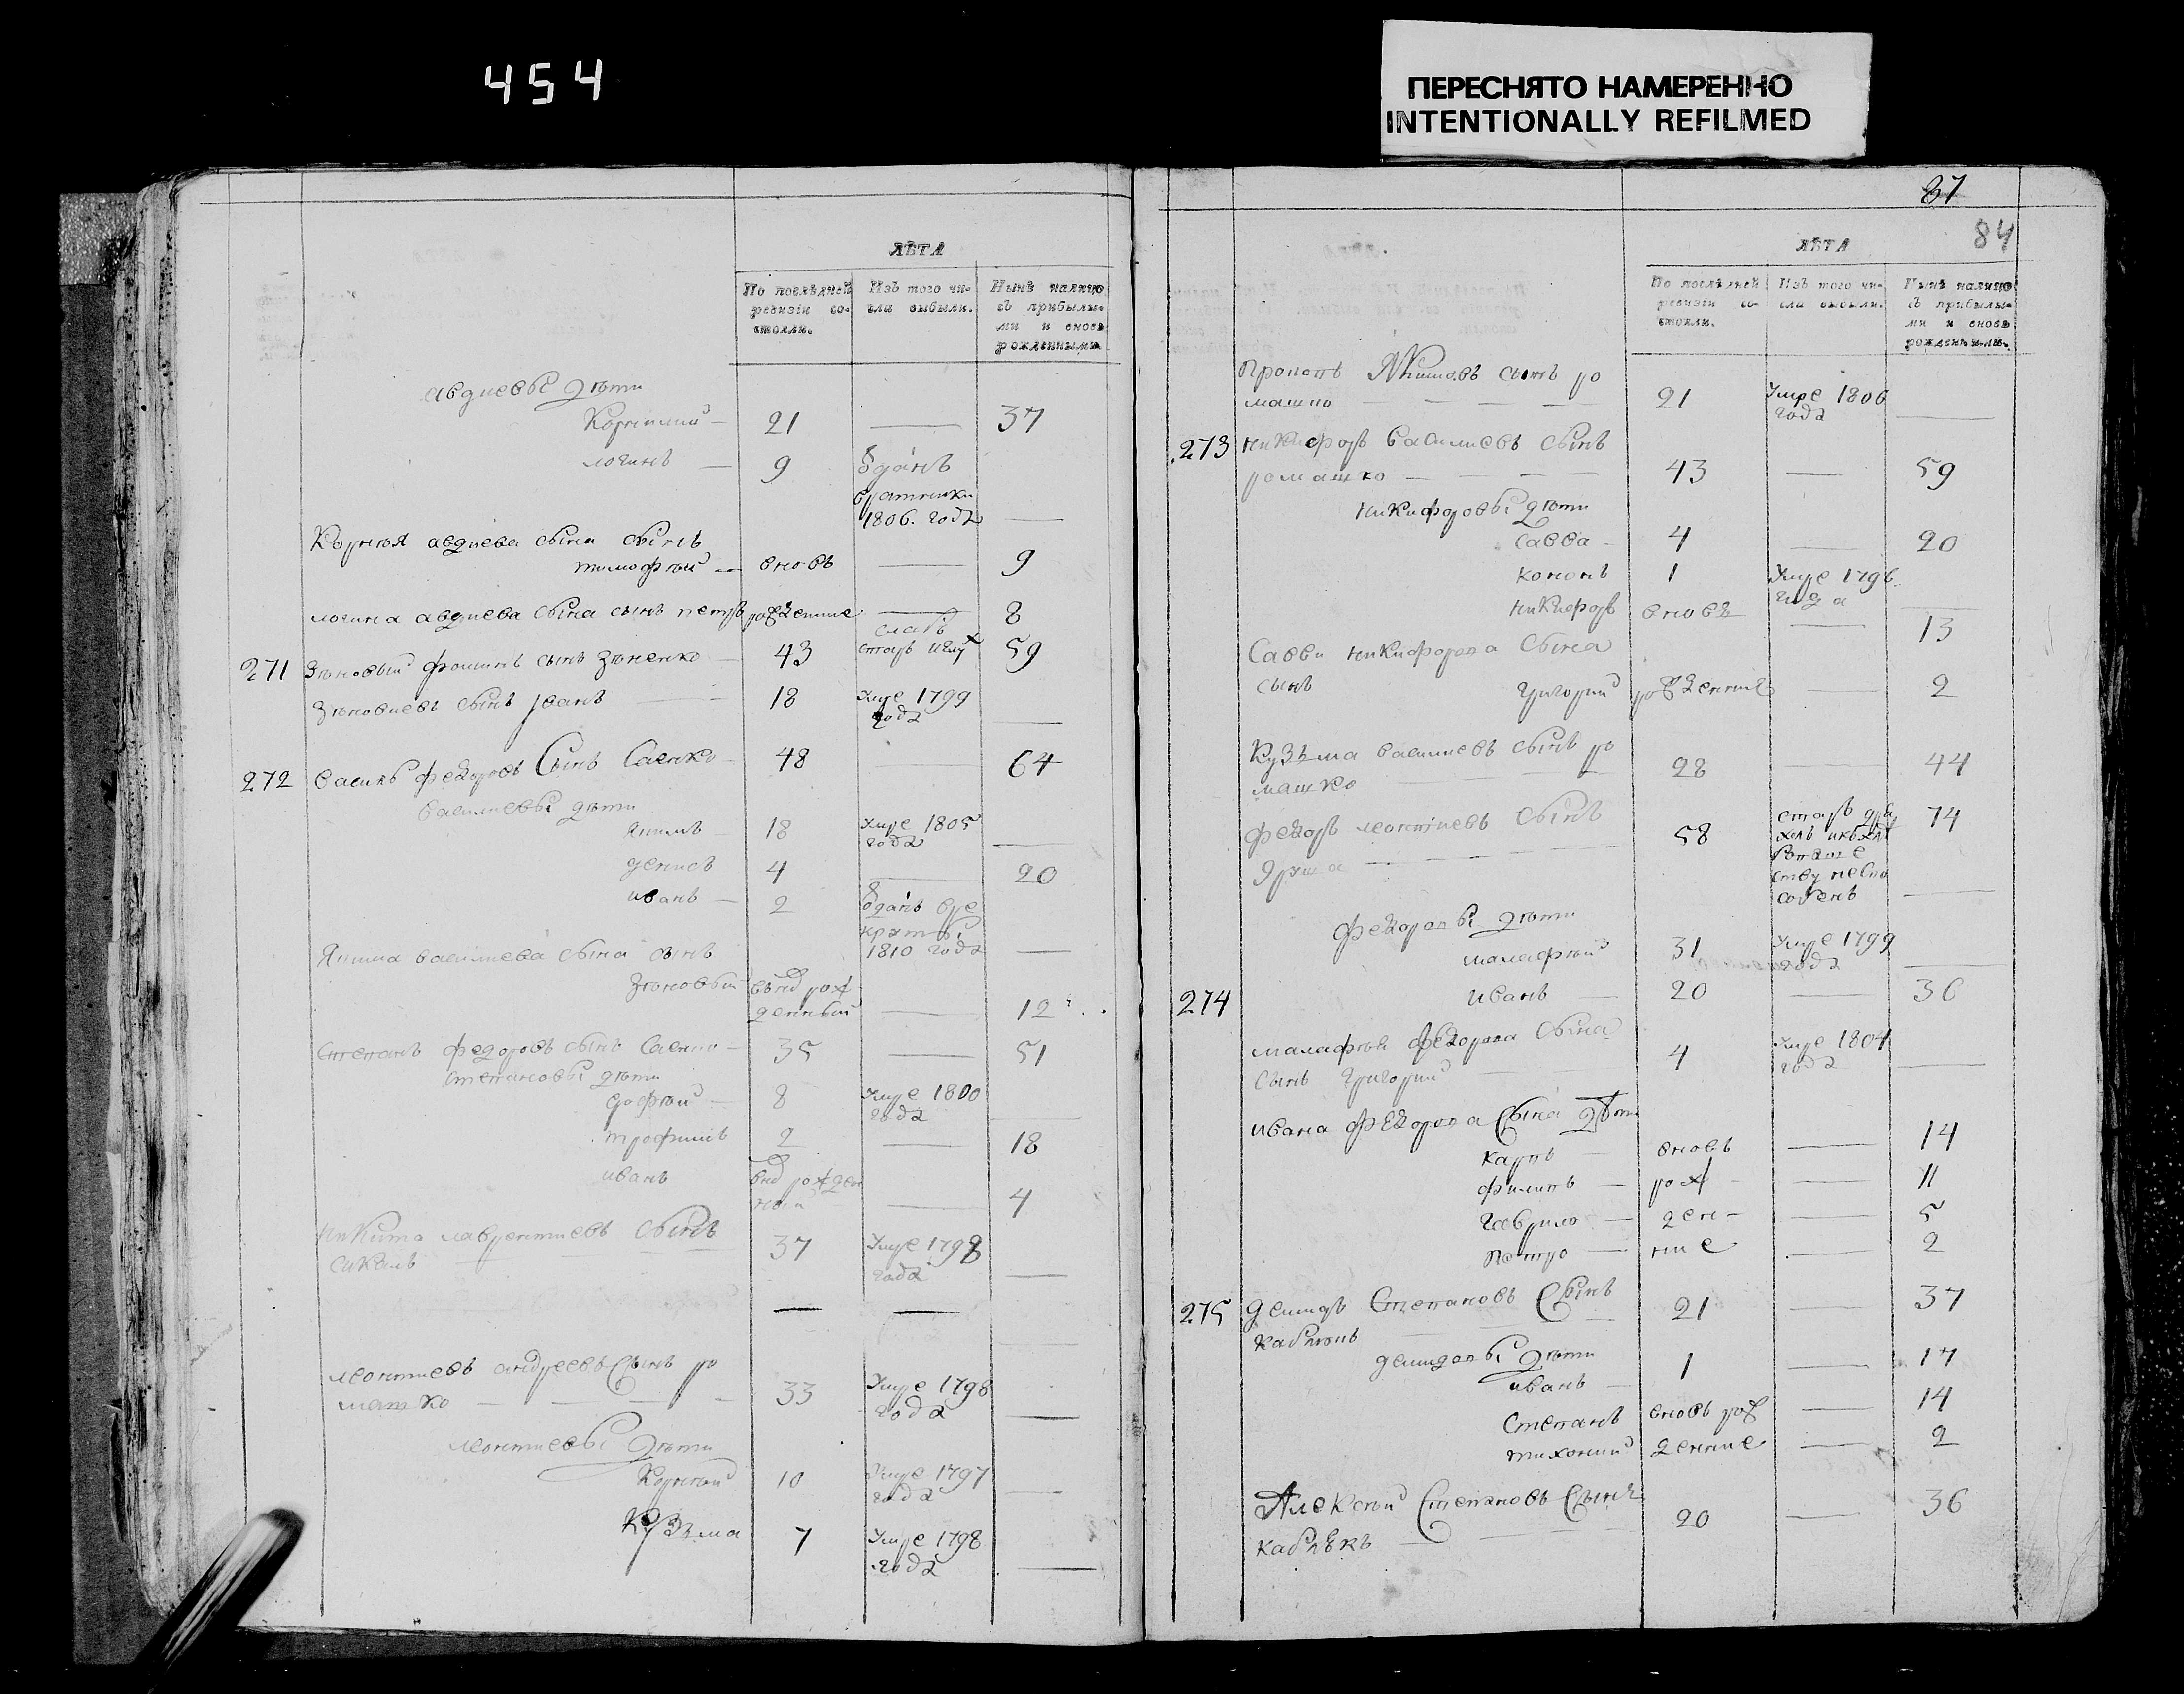 454
ПЕРЕСНЯТО НАМЕРЕННО
INTENTIONALLY REFILMED
ЛѢТА
По послѣдней ревизіи состояли.
Изъ того числа выбыли.
Нынѣ налицо съ прибылыми и вновь рожденными.
авдиевы дѣти
Корнилий — 21 — 37
логинъ — 9 отданъ
в ратники
1806. года —
Корнѣя авдиева сына сынъ
тимофѣй — вновь — 9
логина авдиева сына сынъ петръ рожденние — 8
271 Зѣновий фоминъ сынъ Зѣненко — 43 старъ 59
Зѣновиевъ сынъ иванъ — 18 умре 1799
года —
272 василь федоровъ Сынъ Саенко — 48 — 64
василиевы дѣти
якимъ — 18 умре 1805
года —
денисъ 4 — 20
иванъ — 2 отданъ вре
круты
1810 года —
Якима василиева сына сынъ
Зѣновый внѡ рож
денный — 12
Степанъ федоровъ сынъ Саенко — 35 — 51
степановы дѣти
дофѣй — 8 умре 1800
года —
трофимъ 2 — 18
иванъ внѡ рожден
ный — 4
никита лаврентиевъ сынъ 37 умре 1798
года —
леонтиевъ андреевъ Сынъ ро
машко — 33 умре 1798
года —
леонтиевы дѣти
Корнѣй 10 умре 1797
года —
Кузьма 7 умре 1798
года —
87
84
ЛѢТА
По послѣдней ревизіи состояли.
Изъ того числа выбыли.
Нынѣ налицо съ прибылыми и вновь рожденными.
сынъ ро
машко — 21 умре 1806
года —
273 никифоръ василиевъ сынъ
ромашко — 43 — 59
никифоровы дѣти
савва — 4 — 20
кононъ 1 умре 1796
года —
никифоръ вновь — 13
Савви никифорова сына
сынъ григорий рожденние — 2
Кузьма василиевъ сынъ ро
машко 28 — 44
федоръ леонтиевъ сынъ 58 старъ 74
федоровы дѣти
малафѣй 31 умре 1799
года —
274 иванъ — 20 — 36
малафѣя федорова сына
сынъ григорий 4 умре 1804
года —
ивана федорова Сына дѣти
карпъ — вновь — 14
филипъ — рож — 11
гаврило — ден — 5
петро — ние — 2
275 демидъ Степановъ Сынъ 21 — 37
демидовы дѣти
иванъ — 1 — 17
степанъ вновь рож — 14
тихоний дение — 2
Алексѣй Степановъ Сынъ 20 — 36